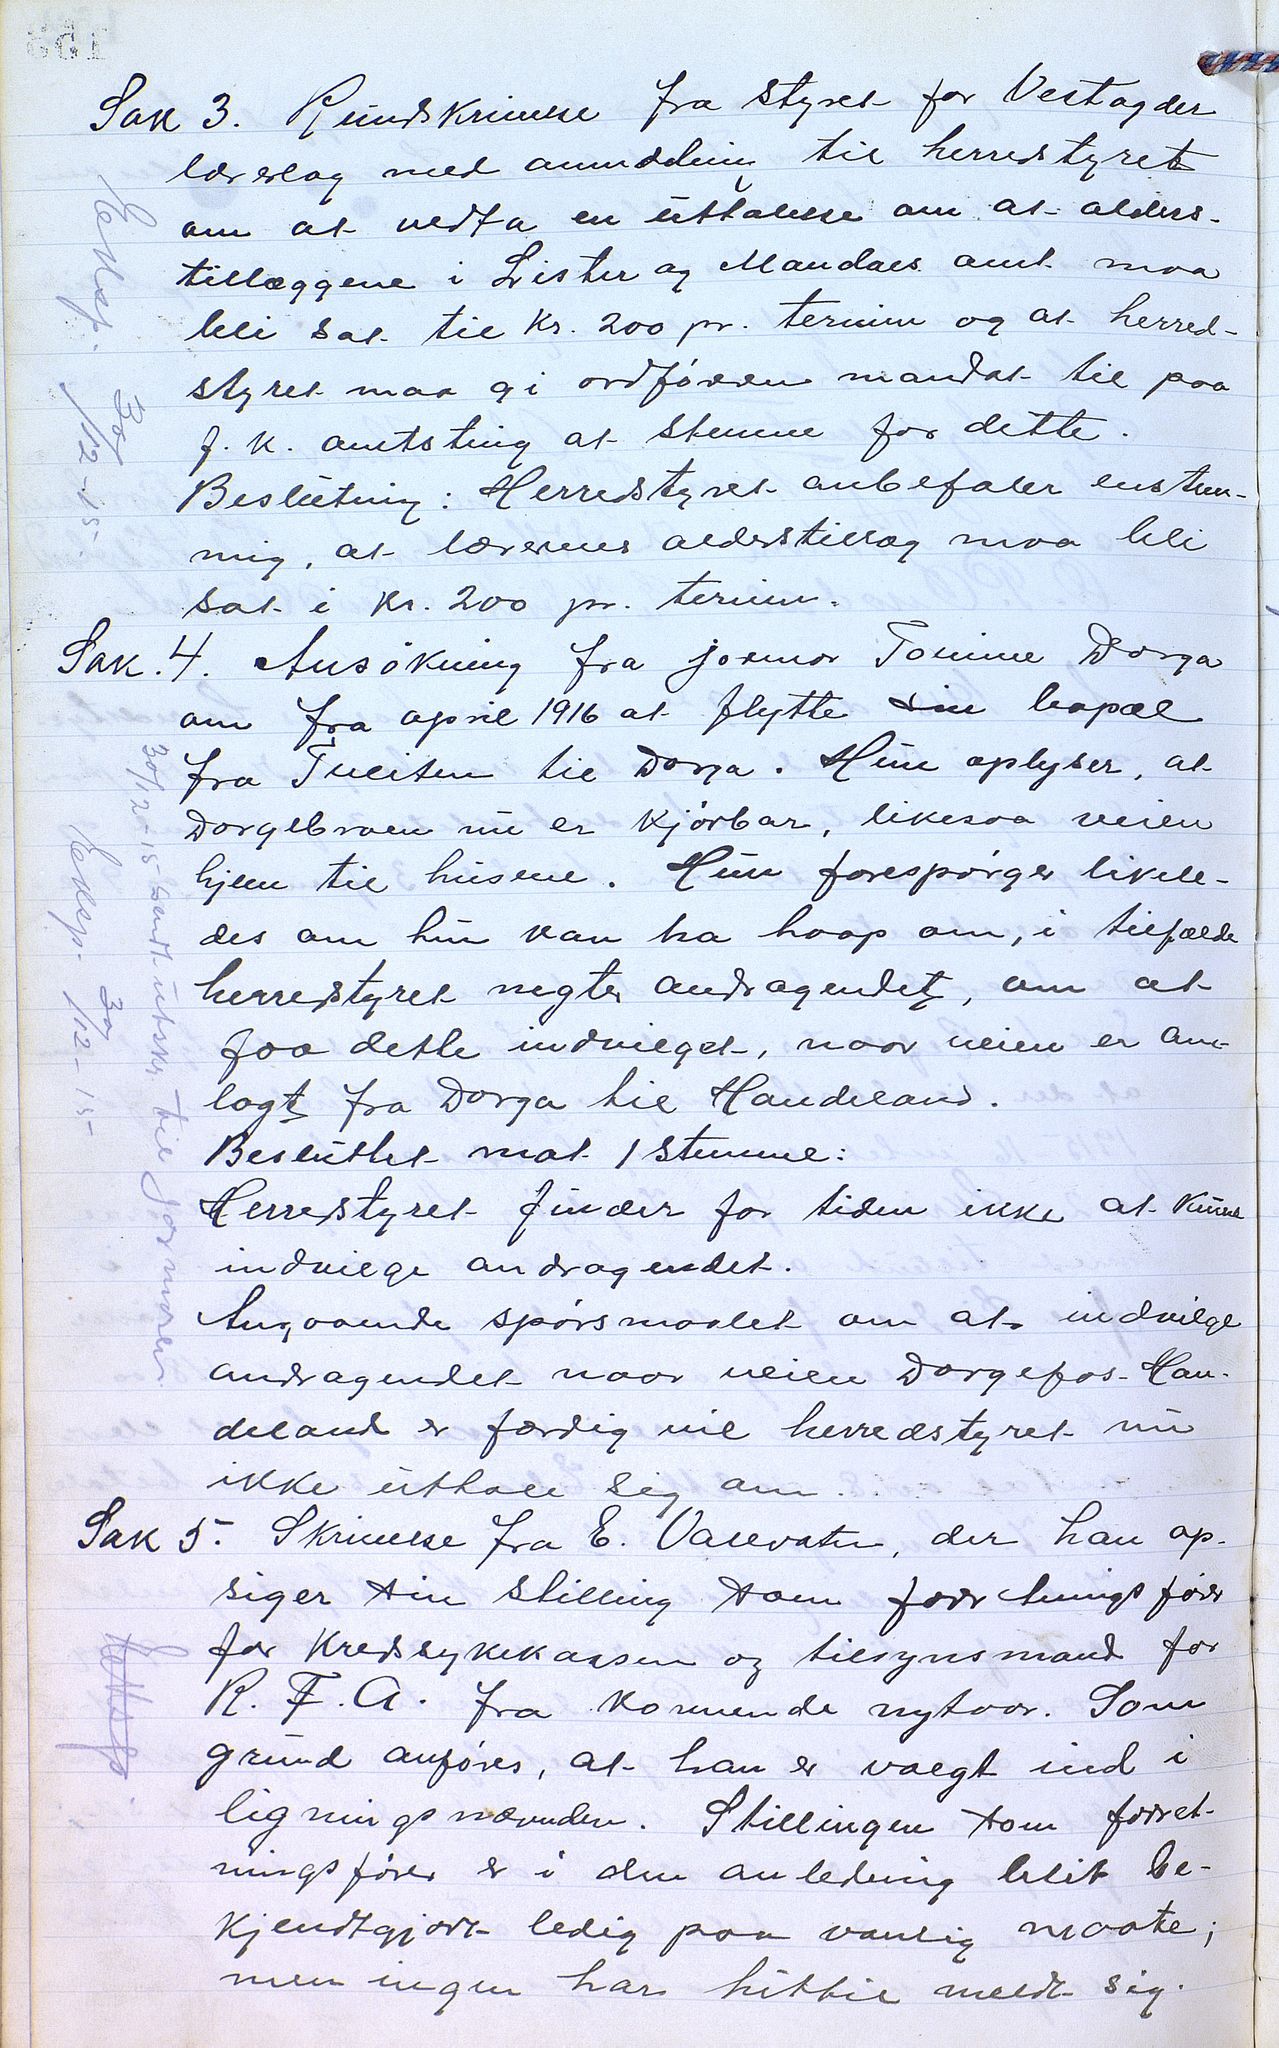 Sak 3. Rundskrivelse fra styret for Vestagder
lærerlag med anmodning til herredstyret
om at vedta en uttalelse om at alders-
tillæggene i Lister og Mandals amt maa
bli sat til kr. 200 pr. termin og at herred-
styret maa gi ordføreren mandat til paa
f. k. amtsting at stemme for dette.
Beslutning: Herredstyret anbefaler enstem-
mig, at lærernes alderstillæg maa bli
sat i kr. 200 pr. termin.
Ekslsp. 30/12-15.
Sak. 4. Ansökning fra jormor Tomine Dorga
om fra april 1916 at flytte sin bopæl
fra Tveiten til Dorga. Hun oplyser, at
Dorgebroen nu er kjörbar, likesaa veien
hjem til husene. Hun forespörger likele-
des om hun kan ha haap om, i tilfælde
herredstyret negter andragendet, om at
faa dette indvilget, naar veien er an-
lagt fra Dorga til Handeland.
Besluttet mot 1 stemme:
Herredstyret finder for tiden ikke at kunne
indvilge andragendet.
Angaaende spörsmaalet om at indvilge
andragendet naar veien Dorgefos-Han-
deland er færdig vil herredstyret nu
ikke uttale sig om.
30/12-15 sendt utskr. til jormoren
Ekslsp. 30/12-15-
Sak 5. Skrivelse fra E. Valevatn, der han op-
siger sin stilling som forretningsförer
for kredssykekassen og tilsynsmand for
R. F. A. fra kommende nytaar. Som
grund anföres, at han er valgt ind i
ligningsnævnden. Stillingen som forret-
ningsförer er i den anledning blit be-
kjendtgjort ledig paa vanlig maate;
men ingen har hittil meldt sig.